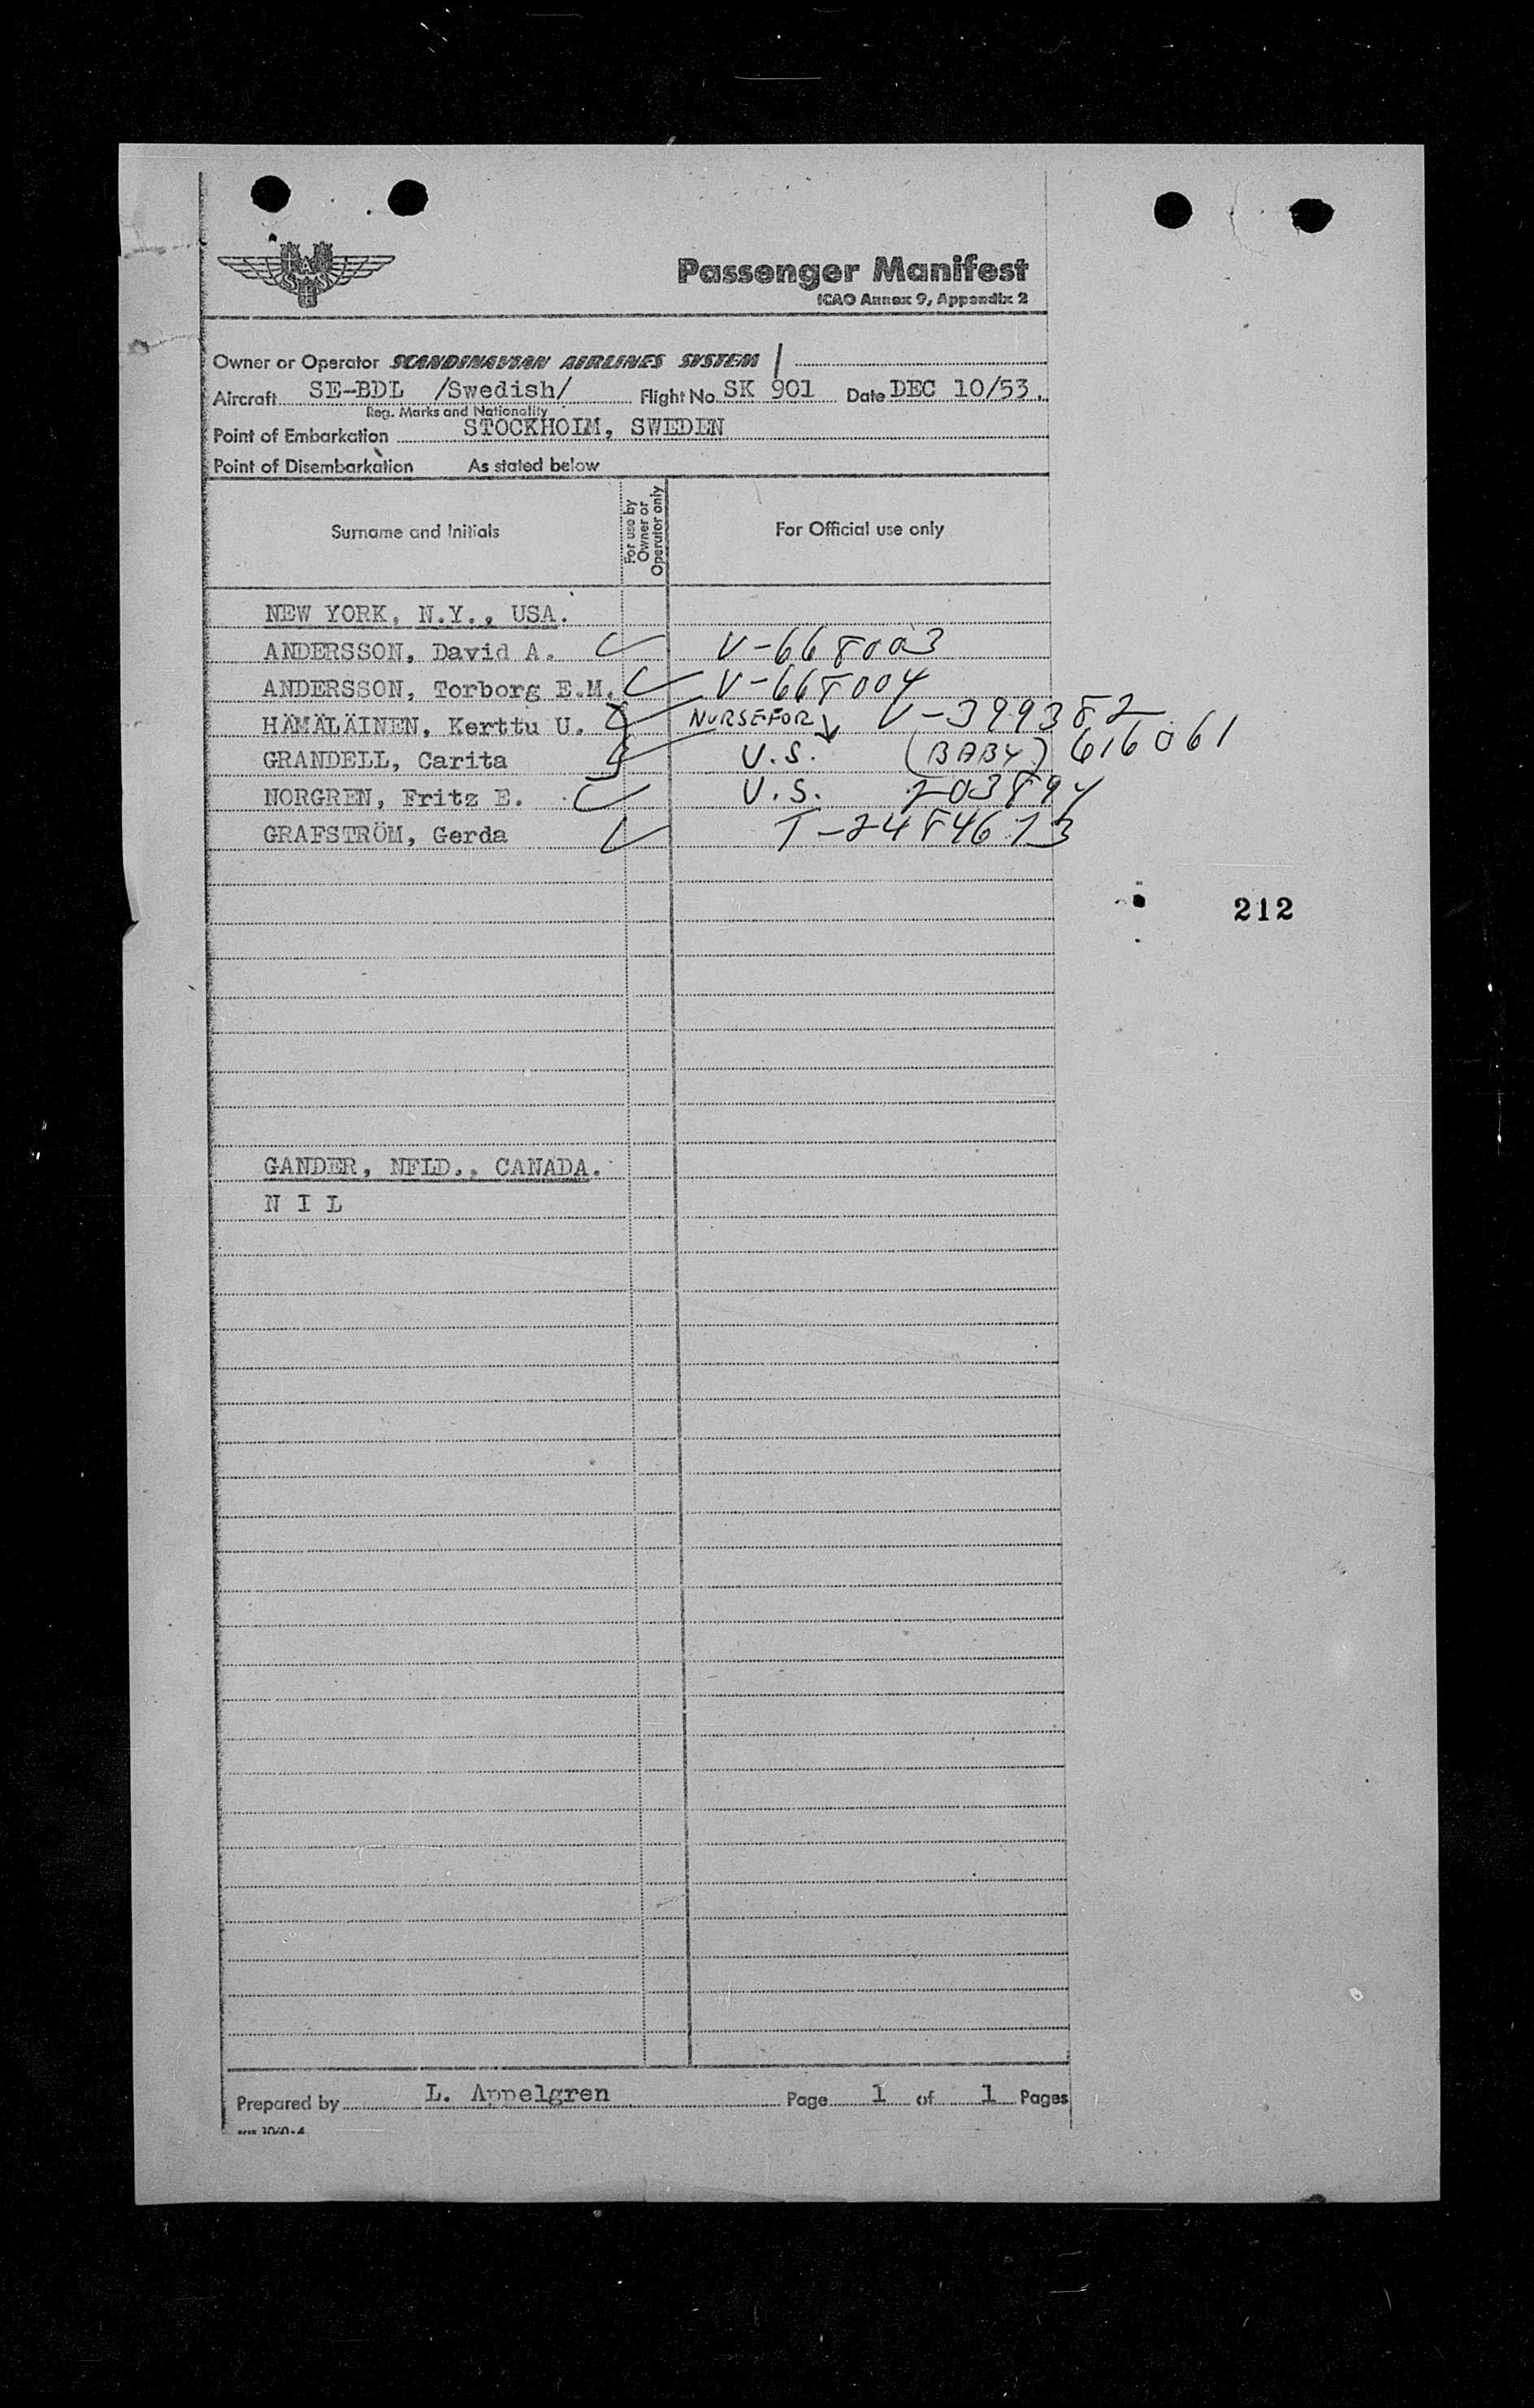 SAS
Passenger Manifest
ICAO Annex 9, Appendix 2
Owner or Operator SCANDINAVIAN AIRLINES SYSTEM
Aircraft SE-BDL /Swedish/ Flight No. SK 901 Date DEC 10/53.
Reg. Marks and Nationality
Point of Embarkation STOCKHOLM, SWEDEN
Point of Disembarkation As stated below
Surname and Initials
For use by
Owner or
Operator only
For Official use only
NEW YORK, N.Y., USA.
ANDERSSON, David A. V-668003
ANDERSSON, Torborg E.M. V-668004
HÄMÄLÄINEN, Kerttu U. NURSE FOR V-399382
GRANDELL, Carita U.S. (BABY) 616061
NORGREN, Fritz E. U.S. 203894
GRAFSTRÖM, Gerda T-2484673
212
GANDER, NFLD., CANADA.
N I L
Prepared by L. Appelgren Page 1 of 1 Pages